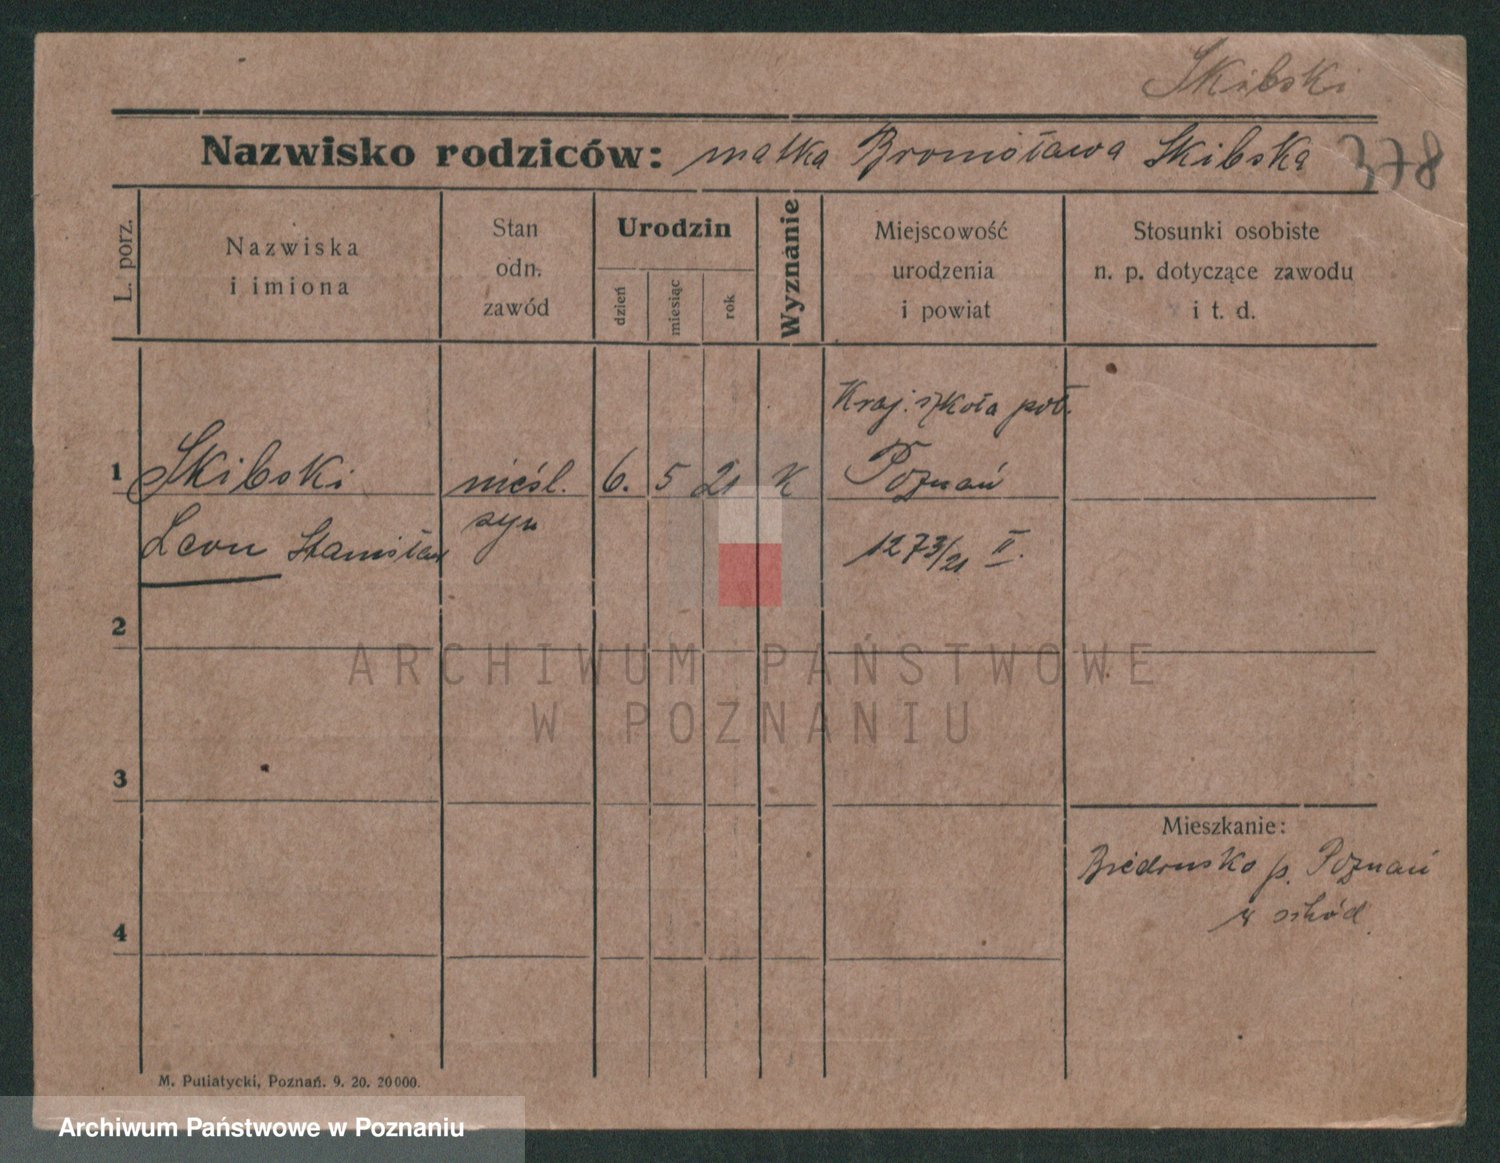 Skibski
Nazwisko rodziców: matka Bronisława Skibska
378
L. porz.
Nazwiska
i imiona
Stan
odn.
zawód
Urodzin
dzień
miesiąc
rok
Wyznanie
Miejscowość
urodzenia
i powiat
Stosunki osobiste
n. p. dotyczące zawodu
i t. d.
Kraj. szkoła poł.
1 Skibski nieśl. 6. 5 21 K Poznań
syn
Leon Stanisław 1273/21 II.
2
ARCHIWUM PAŃSTWOWE
W POZNANIU
3
Mieszkanie:
Biedrusko p. Poznań
4
M. Putiatycki, Poznań. 9. 20. 20000.
Archiwum Państwowe w Poznaniu